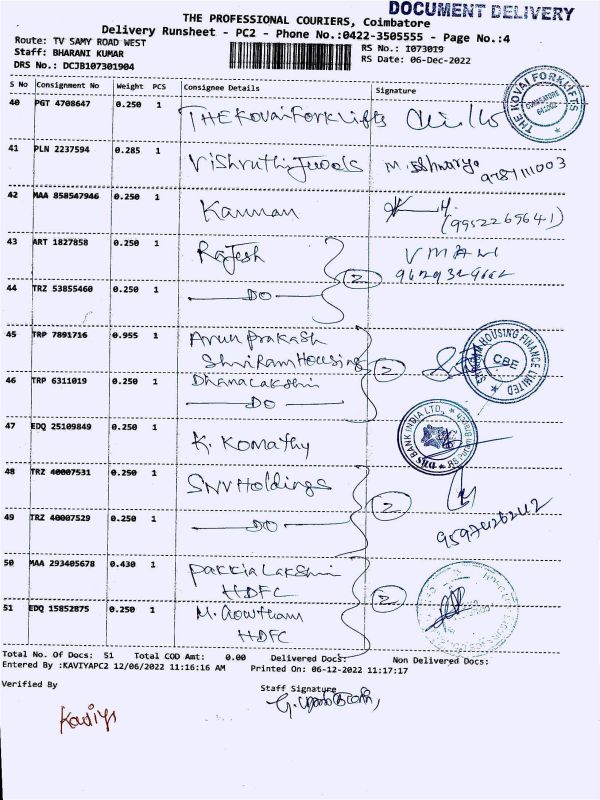 DOCUMENT DELIVERY
THE PROFESSIONAL COURIERS, Coimbatore
Delivery Runsheet - PC2 - Phone No.:0422-3505555 - Page No.:4
Route: TV SAMY ROAD WEST
RS No.: I073019
Staff: BHARANI KUMAR
RS Date: 06-Dec-2022
DRS No.: DCJB107301904
S No Consignment No Weight PCS Consignee Details Signature
40 PGT 4708647 0.250 1 THE Kovai Forklifts
THE KOVAI FORKLIFTS COIMBATORE
41 PLN 2237594 0.285 1 Vishruthi Jewels
42 MAA 858547946 0.250 1 Kannan
(9952265641)
43 ART 1827858 0.250 1 Rajesh VMANI
2
44 TRZ 53855460 0.250 1 DO
45 TRP 7891716 0.955 1 Arun prakash
Shriram Housing 2
HOUSING FINANCE LIMITED CBE
46 TRP 6311019 0.250 1 Dhanalakshmi
DO
BANK INDIA LTD.,
47 EDQ 25109849 0.250 1 K. Komathy
48 TRZ 40007531 0.250 1 SNV Holdings
2
49 TRZ 40007529 0.250 1 DO 9597426242
50 MAA 293405678 0.430 1 Pakkia Lakshmi
HDFC 2
51 EDQ 15852875 0.250 1 M. Gowtham
HDFC
Total No. Of Docs: 51 Total COD Amt: 0.00 Delivered Docs: Non Delivered Docs:
Entered By :KAVIYAPC2 12/06/2022 11:16:16 AM Printed On: 06-12-2022 11:17:17
Verified By Staff Signature
Kaviya